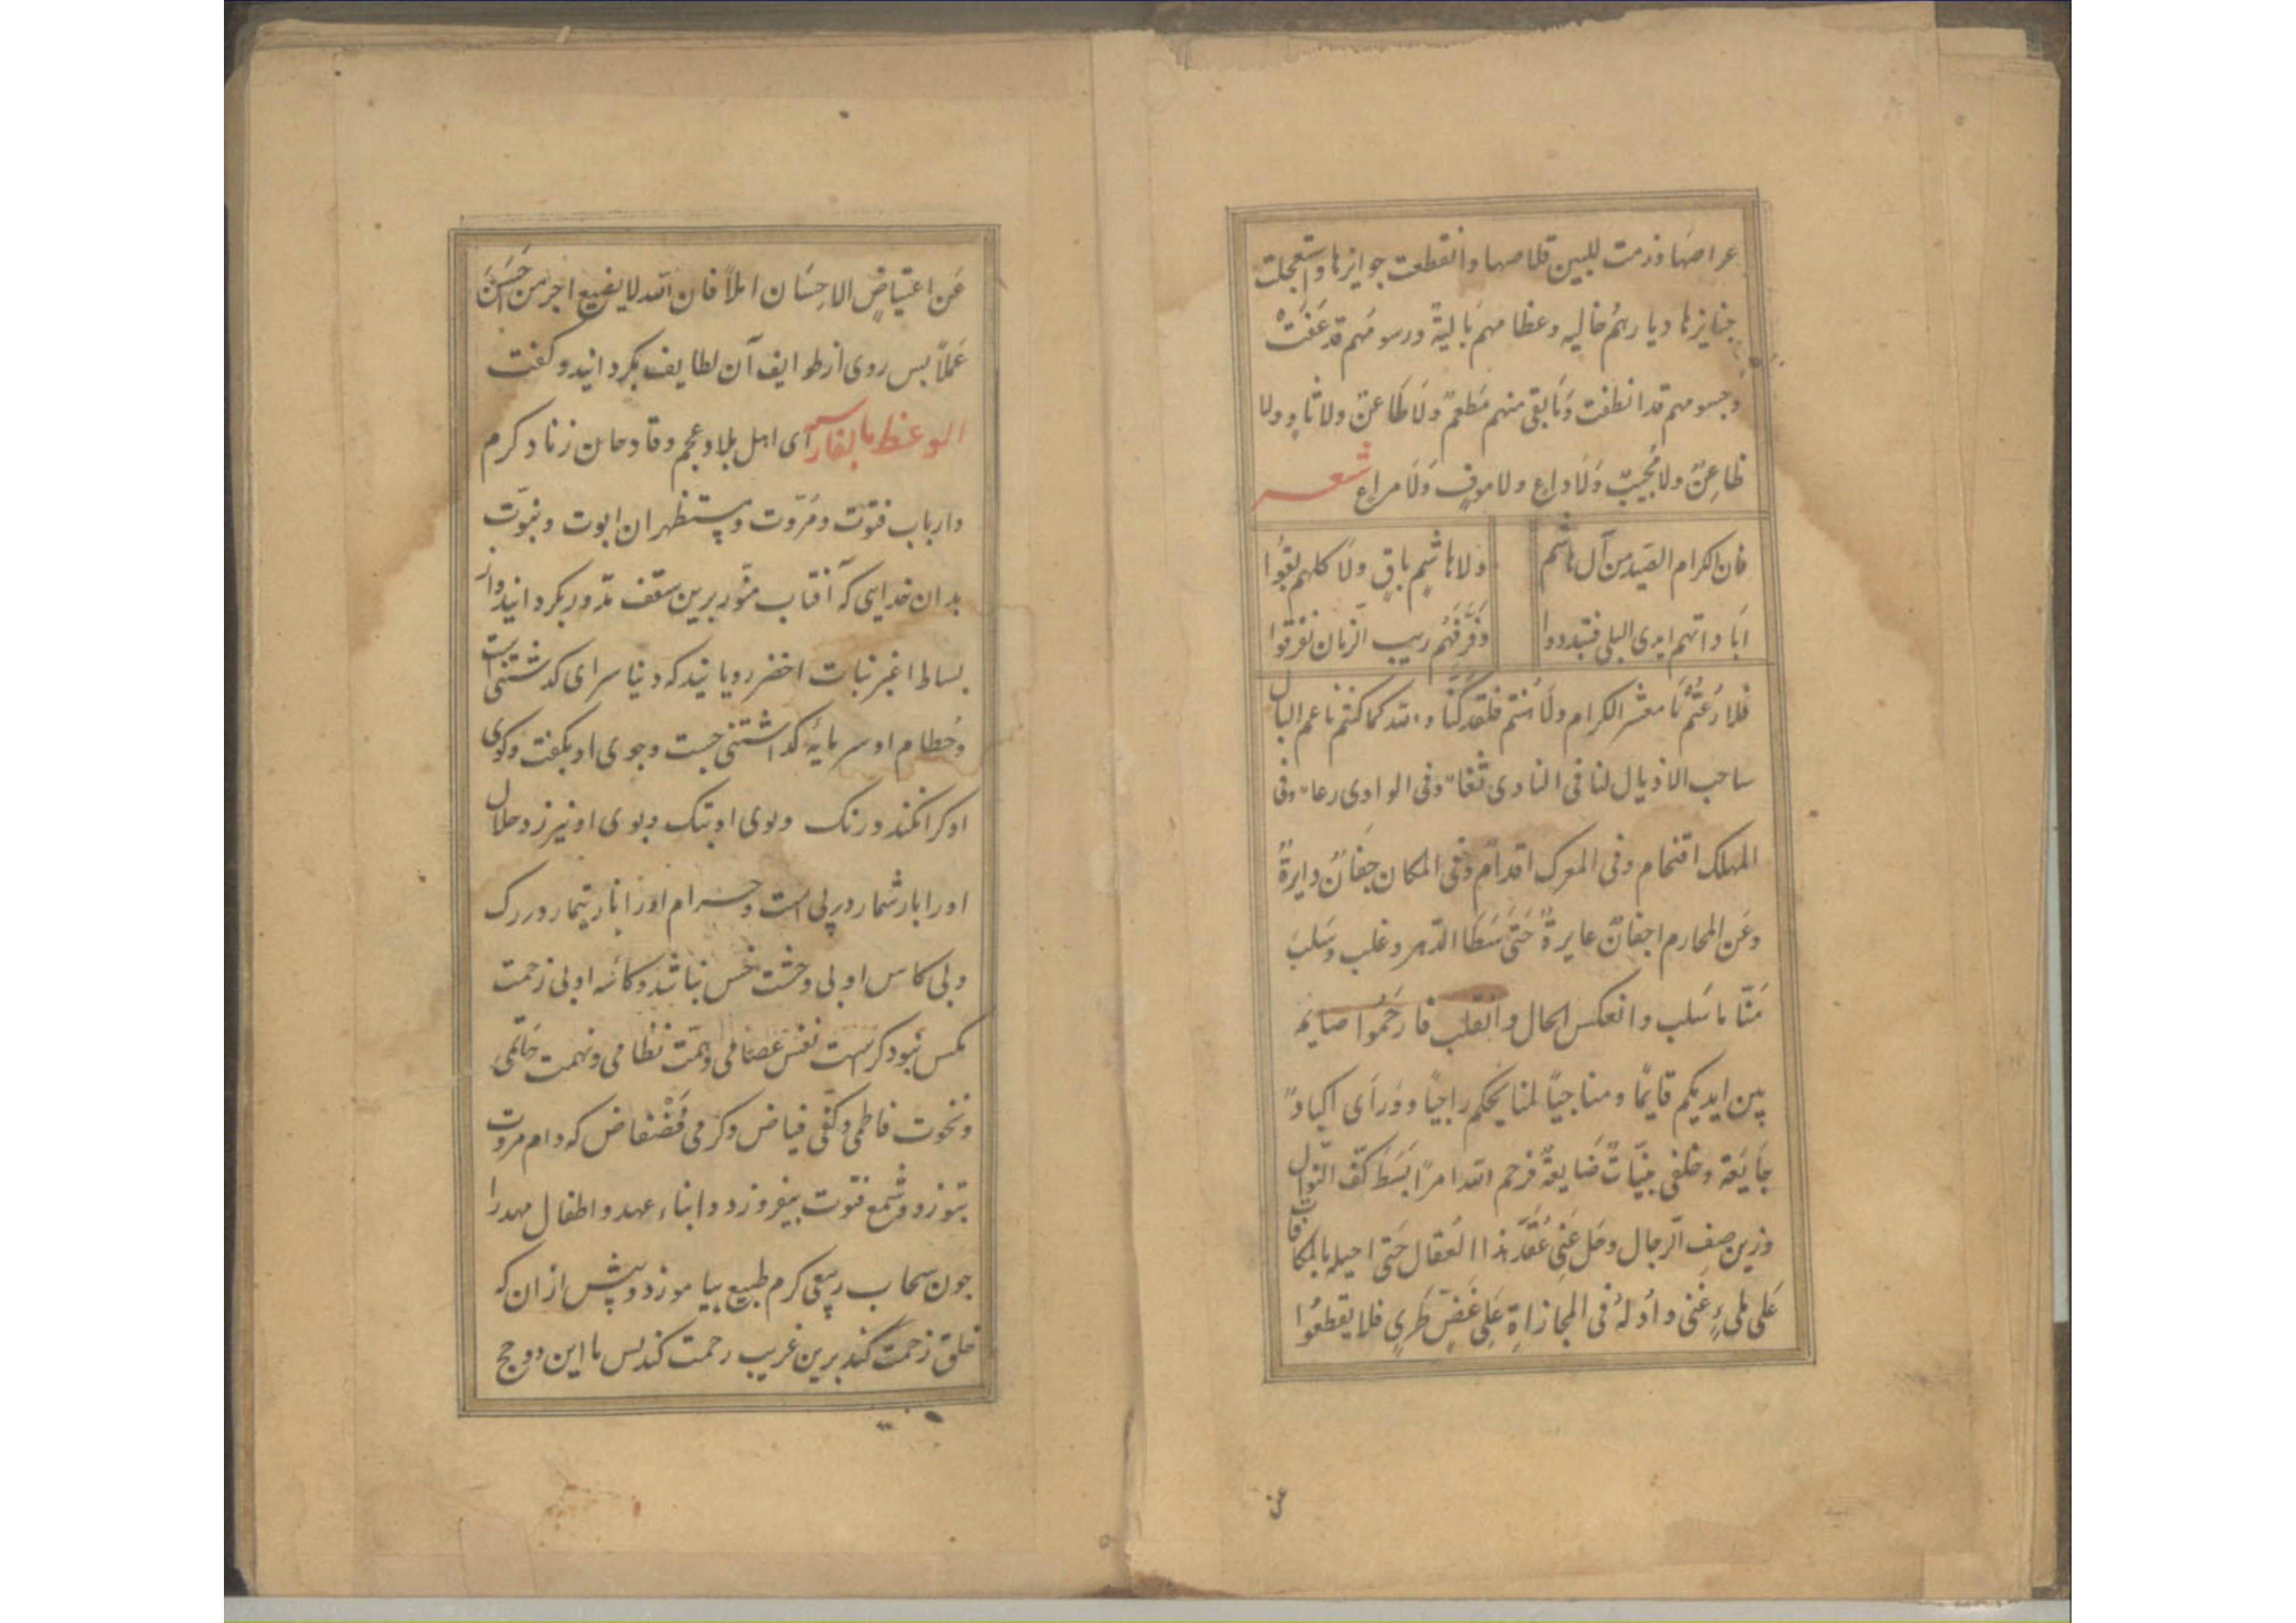 عراصها وزمت للبین قلاصها وانقطعت جوایزها واستعجلت
جنایزها دیارهم خالیه وعظامهم بالیة ورسومهم قد عفت
وجسومهم قد انطفت وما بقی منهم مطعم ولا طاعن ولا ثاو ولا
ظاعن ولا مجیب ولا داع ولا موف ولا مراع شعر
فان الکرام الصید من آل هاشم ولا هاشم باق ولا کلهم بقوا
اباداتهم ایدی البلی فتبددوا وفرقهم ریب الزمان تفرقوا
فلا رعتم یا معشر الکرام ولا فلقد کنا والله کما کنتم ناعم البال
ساحب الاذیال لنا فی النادی ثغاء وفی الوادی رعاء وفی
المهلک اقتحام وفی المعرک اقدام وفی المکان جفان دایرة
وعن المحارم اجفان عایرة حتی سطا الدهر وغلب وسلب
منا ما سلب وانعکس الحال وانقلب فارحموا
بین ایدیکم قایما ومناجیا لمنایحکم راجیا وورای اکباد
جایعة وخلفی بنیات ضایعة فرحم الله امرأ بسط کف النوال
وزین صف الرجال وحل عنی عقد هذا العقال حتی احیله بالمکافات
علی ملیء غنی وادله فی المجازاة علی غض طری فلا یقطعوا
عن
عن اعتیاض الاحسان املا فان الله لا یضیع اجر من احسن
عملا بس روی از طوایف آن لطایف بکردانید وکفت
الوعظ بالفارسی ای اهل بلاد عجم وقادحان زناد کرم
وارباب فتوت ومروت ومستظهران ابوت وبنوت
بدان خدایی که آفتاب منور برین سقف مدور بکردانید واز
بساط اغبر نبات اخضر رویانید که دنیا سرای کذشتنی است
وحطام او سرمایهٔ کذاشتنی جست وجوی او بکفت وکوی
او کرا نکند ورنک وبوی او بتک وبوی او نیرزد حلال
او را بار شمار در بی است وحرام او را بار تیمار در رک
وبی کاس او بی وحشت خس نباشد وکاسه او بی زحمت
مکس نبود کراست نفس عصامی وهمت نظامی ونهمت حاتمی
ونخوت فاطمی وکفی فیاض وکرمی فضفاض که وام مروت
بتوزد وشمع فتوت بیفروزد وابناء عهد واطفال مهد را
جون سحاب ربیعی کرم طبیع بیاموزد وبیش از ان که
خلق زحمت کند برین غریب رحمت کند بس با این دوحج